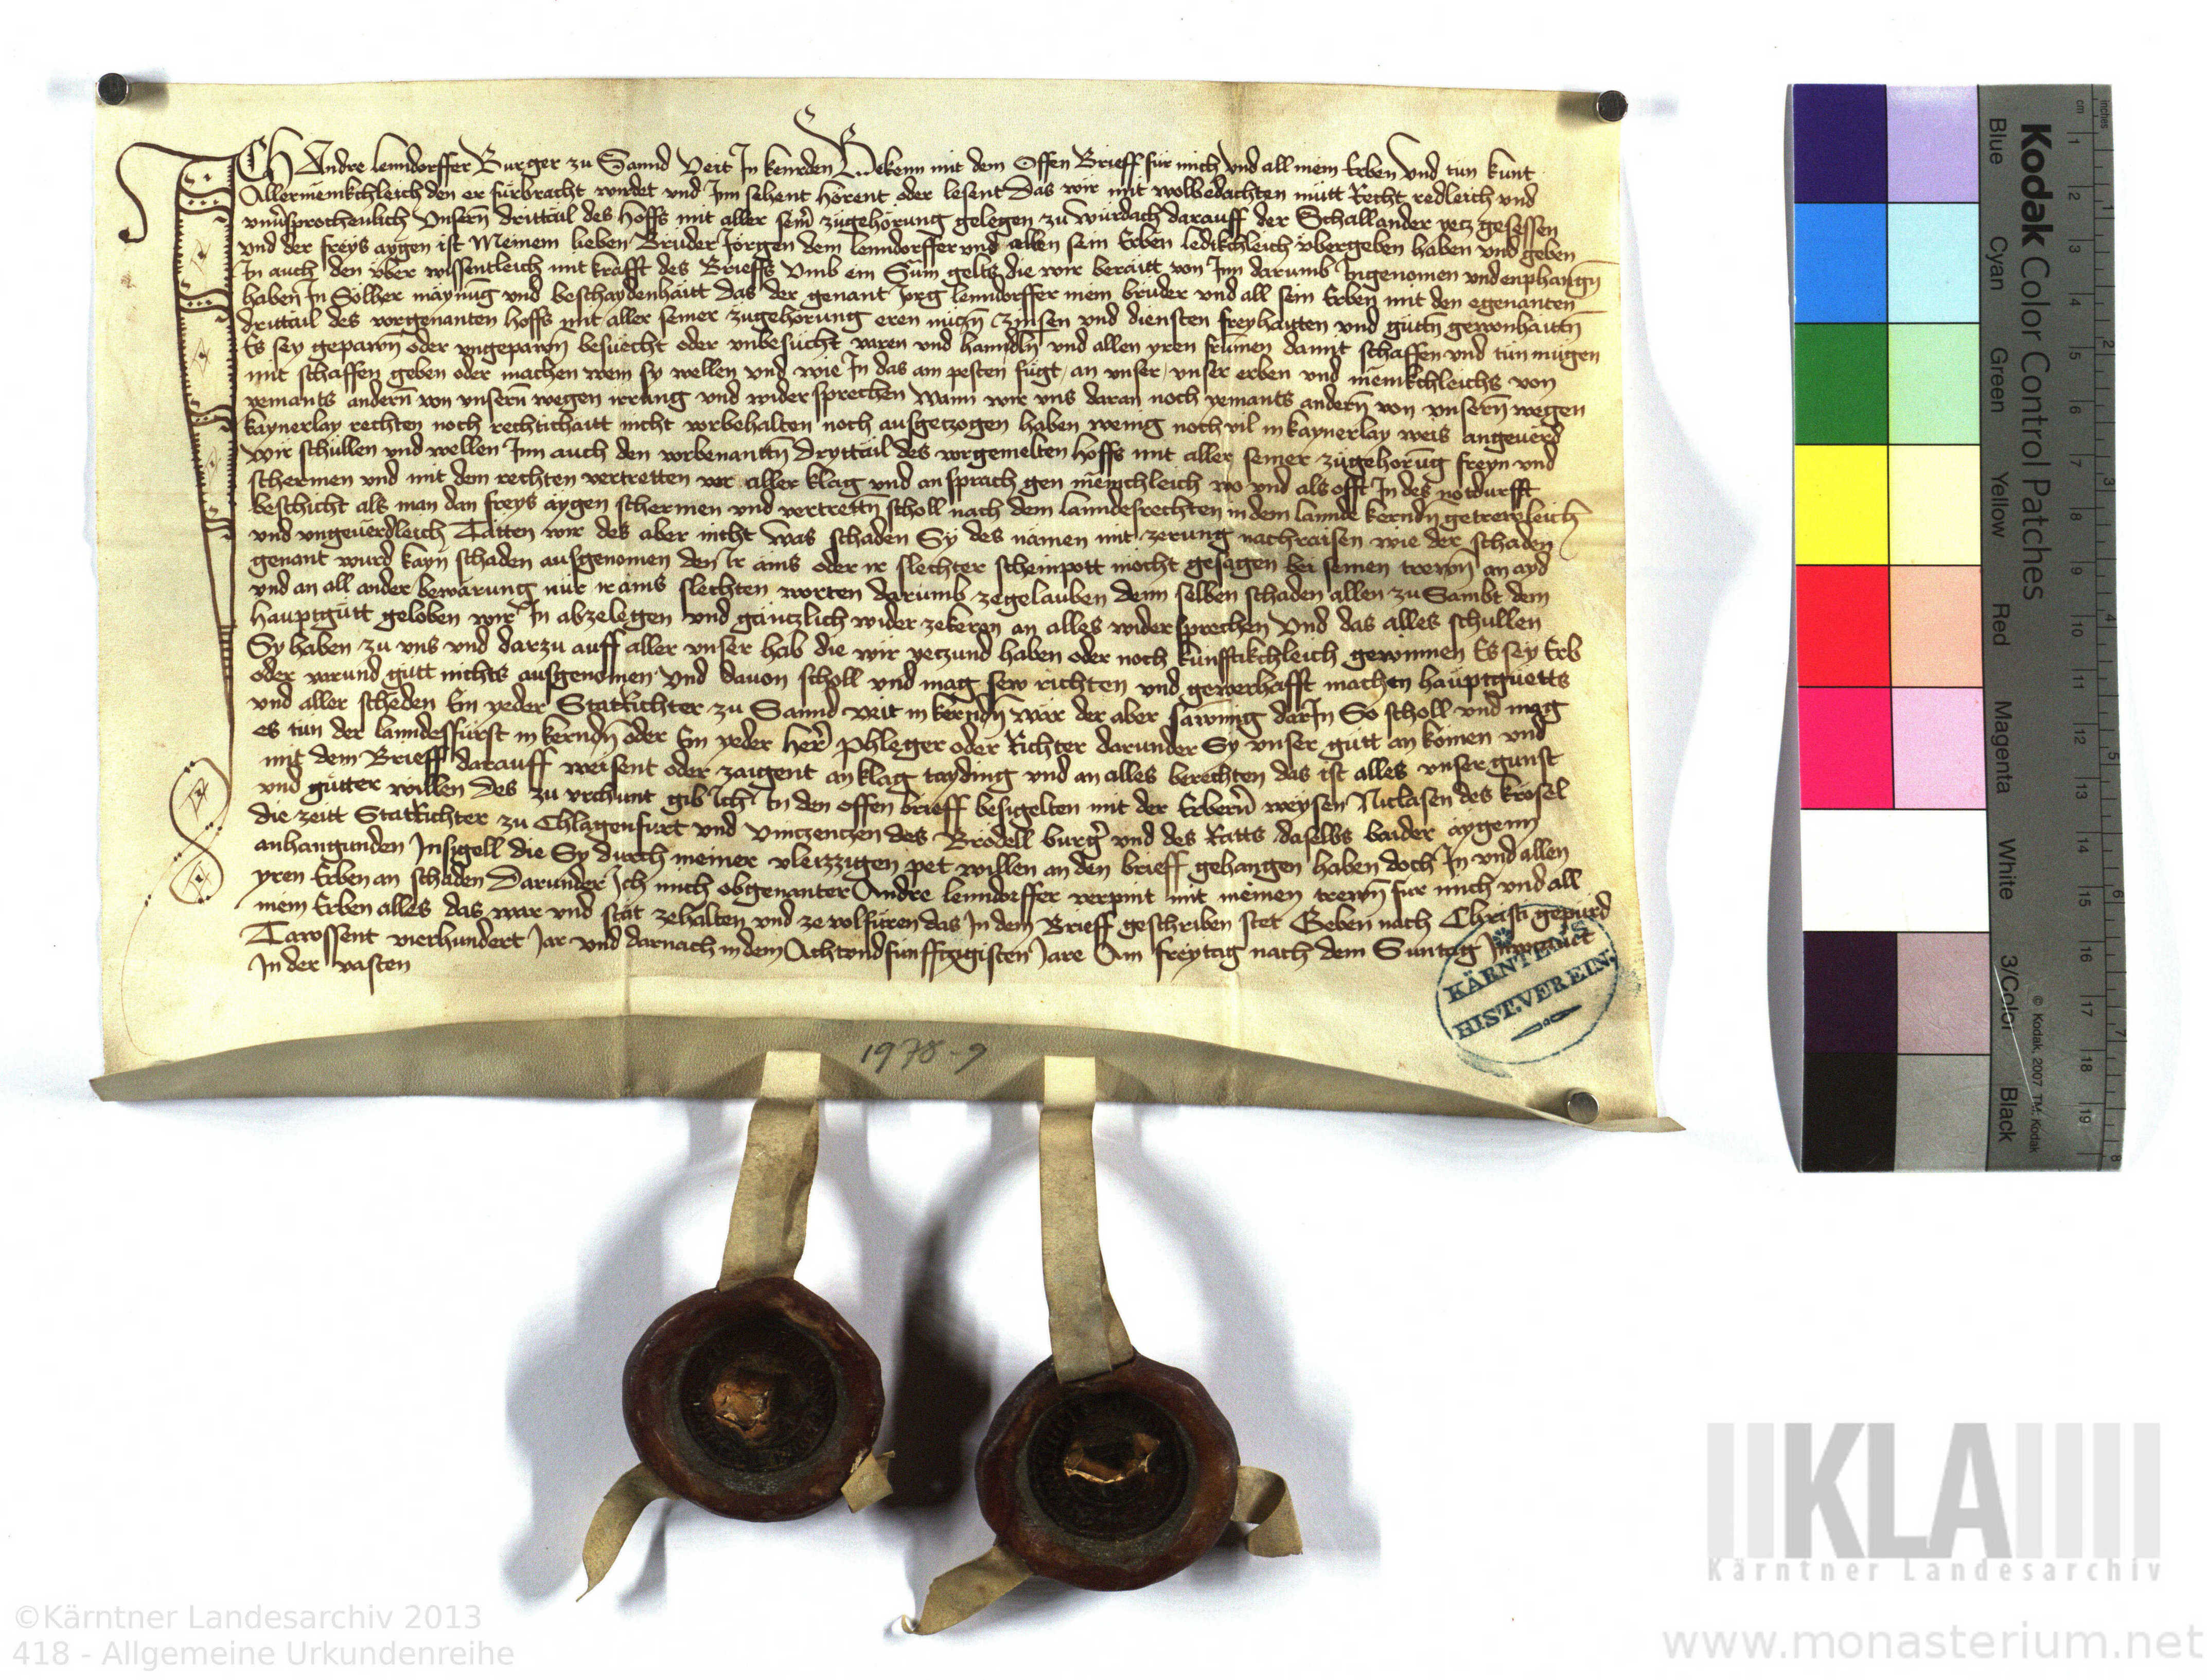 Ich Andre lenndorffer Burger zu Sannd Veit In kernden Bekenn mit dem Offen Brieff für mich und all mein Erben Und tün kunt
Allermēinkchleich den er fürbracht wirdet und Inn sehent hörent oder lesent Das wir mit wolbedachten mütt Recht redleich und
unuersprochenlich Unsern drittail des hoffs mit aller seiner zügehörung gelegen zu würdach darauff der Schallander yecz gesessen
und der freys aygen ist Meinem lieben Brüder Jörgen dem lenndorffer und allen sein Erben ledikchleich übergeben haben und geben
In auch den über wissentleich mit krafft des Brieffs Umb ein Sūm gelts die wir beraitt von Inn darumb Ingenomen und enphangn̄
haben In Sölher maynūg und beschaydenhaitt das der genant Jorg lenndorffer mein brüder und all sein Erben mit den egenanten
drittail des vorgenanten hoffs mit aller seiner zügehörung eren nüczn̄ zinsen und diensten freyhaitten und güttn̄ gewonhaittn̄
Es sey gepawn̄ oder ungepawn̄ besüecht oder unbesücht varen und hanndln̄ und allen yren frümen damit schaffen und tün mügen
mit schaffen geben oder machen wem sy wellen und wie In das am pesten fügt an unser unser erben und mēinkchleichs von
yemants andern̄ von unsern̄ wegen irrung und wider sprechen Wann wir uns daran noch yemants andern̄ von unsern̄ wegen
kaynerlay rechten noch rechtichaitt nicht vorbehalten noch ausgeczogen haben wenig noch vil in kaynerlay weis angeuerd
Wir schullen und wellen Inn auch den vorbenantn̄ dryttail des vorgemelten hoffs mit aller seiner zügehörūg freyn und
schermen und mit dem rechten vertretten vor aller klag und ansprach gen mēinchleich wo und als offt In des notdurfft
beschicht als man dan freys aygen schermen und vertrettn̄ scholl nach dem lanndesrechten in dem lannde kerndn̄ getrewleich
und ungeuerdleich Tätten wir des aber nicht Was schaden Sy des namen mit zerung nachraisen wie der schaden
genant wurd kayn̄ schaden ausgenomen den Ir ains oder ir slechter scheinpott möcht gesagen bei seinen trewn̄ an ayd
und an all ander bewärung nür ir ains slechten worten darumb zegelauben Denn selben schaden allen zu Sambt dem
hauptgütt geloben wir In abzelegen und gänczlich wider zekeren an alles widersprechen Und das alles schullen
Sy haben zu uns und darzu auff aller unser hab die wir yeczund haben oder noch künfftikchleich gewinnen Es sey Erb
oder varund gütt nichts ausgenomen Und dauon scholl und mag sew richten und gewerhafft machen hauptguetts
und aller scheden Ein yeder StatRichter zu Sannd Veit in kerndn̄ wär der aber sawmig darIn So scholl und mag
es tun der lanndesfürst in kerndn̄ oder Ein yeder her̄ phleger oder Richter darunder Sy unser gütt an komen und
mit dem Brieff darauff weisent oder zaigent an klag tayding und an alles berechten das ist alles unser gunst
und gütter willen Des zu urchunt gib Ich In den offen brieff besigelten mit der Erbern̄ weysen Niclasen des krösel
die zeitt StatRichter zu Chlagenfurt und Vinczenczen des Brödell burḡ und des Ratts daselbs baider aygenn
anhangunden Insigell die Sy durch meiner vleizzigen pet willen an den brieff gehangen haben doch In und allen
yren Erben an schaden Darunder Ich mich obgenanter Andre lenndorffer verpint mit meinen trewn̄ für mich und all
mein Erben alles das war und stät zehalten und ze volfüren das In dem Brieff geschriben stet Geben nach Christi gepürd
Tawssent vierhundert Jar und darnach in dem Achtundfunffczigisten Jare Am freytag nach dem Suntag Inuocauit
In der vasten
KÄRNTEN'S
HIST.VEREIN.
1978-9
Kodak Color Control Patches
© Kodak, 2007 TM: Kodak
Blue Cyan Green Yellow Red Magenta White 3/Color Black
cm 1 2 3 4 5 6 7 8 9 10 11 12 13 14 15 16 17 18 19
inches 1 2 3 4 5 6 7 8
KLA
Kärntner Landesarchiv
©Kärntner Landesarchiv 2013
418 - Allgemeine Urkundenreihe
www.monasterium.net